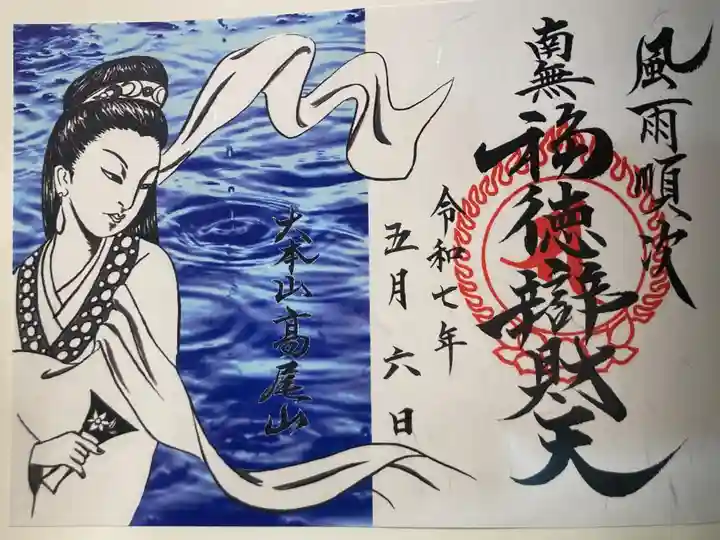 風雨順次
南無
福徳辯財天
令和七年
五月六日
大本山髙尾山